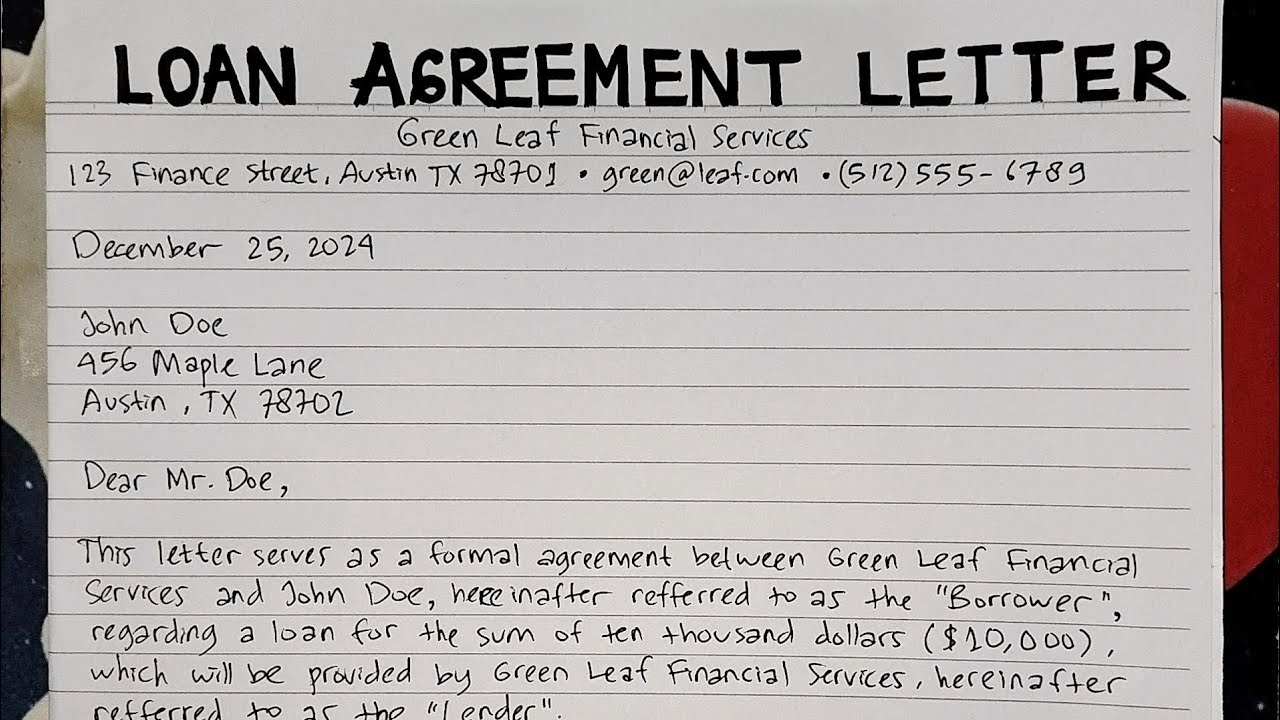 LOAN AGREEMENT LETTER
Green Leaf Financial Services
123 Finance Street, Austin TX 78701 • green@leaf.com • (512) 555-6789
December 25, 2024
John Doe
456 Maple Lane
Austin, TX 78702
Dear Mr. Doe,
This letter serves as a formal agreement between Green Leaf Financial
Services and John Doe, hereinafter refferred to as the "Borrower",
regarding a loan for the sum of ten thousand dollars ($10,000),
which will be provided by Green Leaf Financial Services, hereinafter
refferred to as the "Lender".